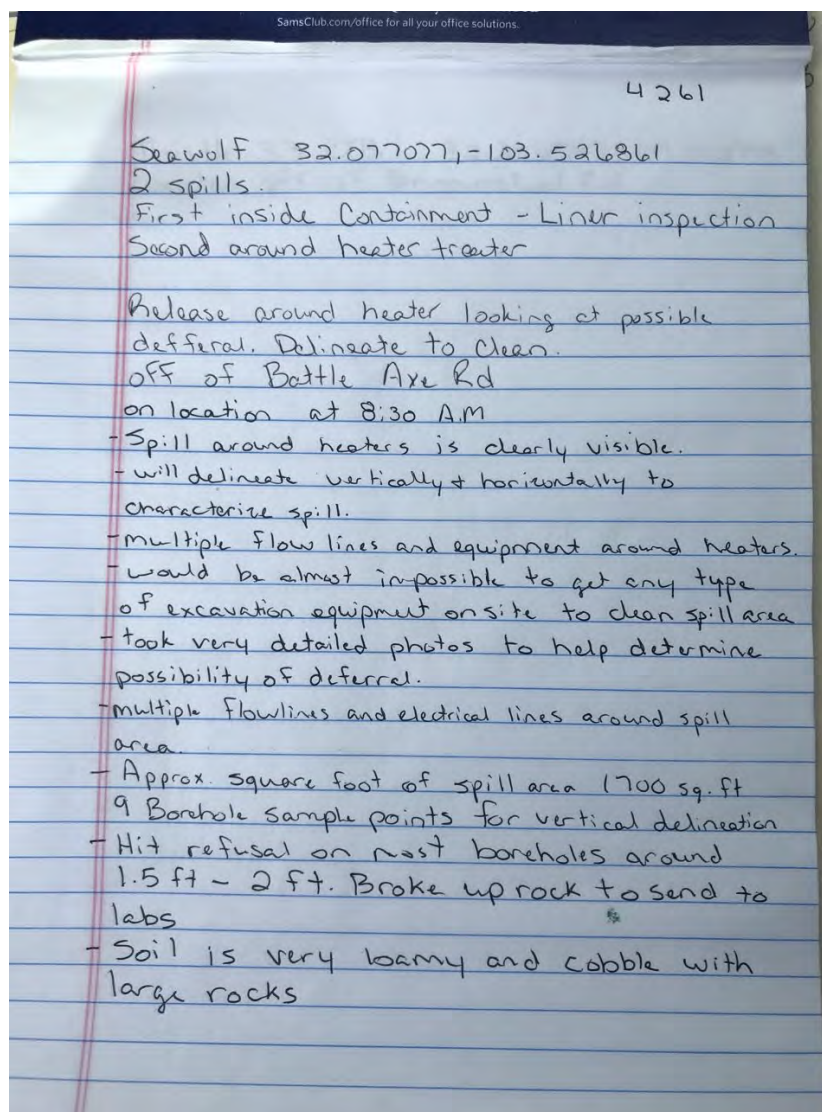 SamsClub.com/office for all your office solutions.
4261
Seawolf 32.077077,-103.526861
2 spills.
First inside Containment - Liner inspection
Second around heater treater
Release around heater looking at possible
defferal. Delineate to clean.
off of Battle Axe Rd
on location at 8:30 A.M
- Spill around heaters is clearly visible.
- will delineate vertically & horizontally to
characterize spill.
- multiple flow lines and equipment around heaters.
- would be almost impossible to get any type
of excavation equipmut on site to clean spill area
- took very detailed photos to help determine
possibility of deferral.
- multiple flowlines and electrical lines around spill
area.
- Approx. square foot of spill area 1700 sq. ft
9 Borehole sample points for vertical delineation
- Hit refusal on most boreholes around
1.5 ft - 2 ft. Broke up rock to send to
labs
- Soil is very loamy and cobble with
large rocks